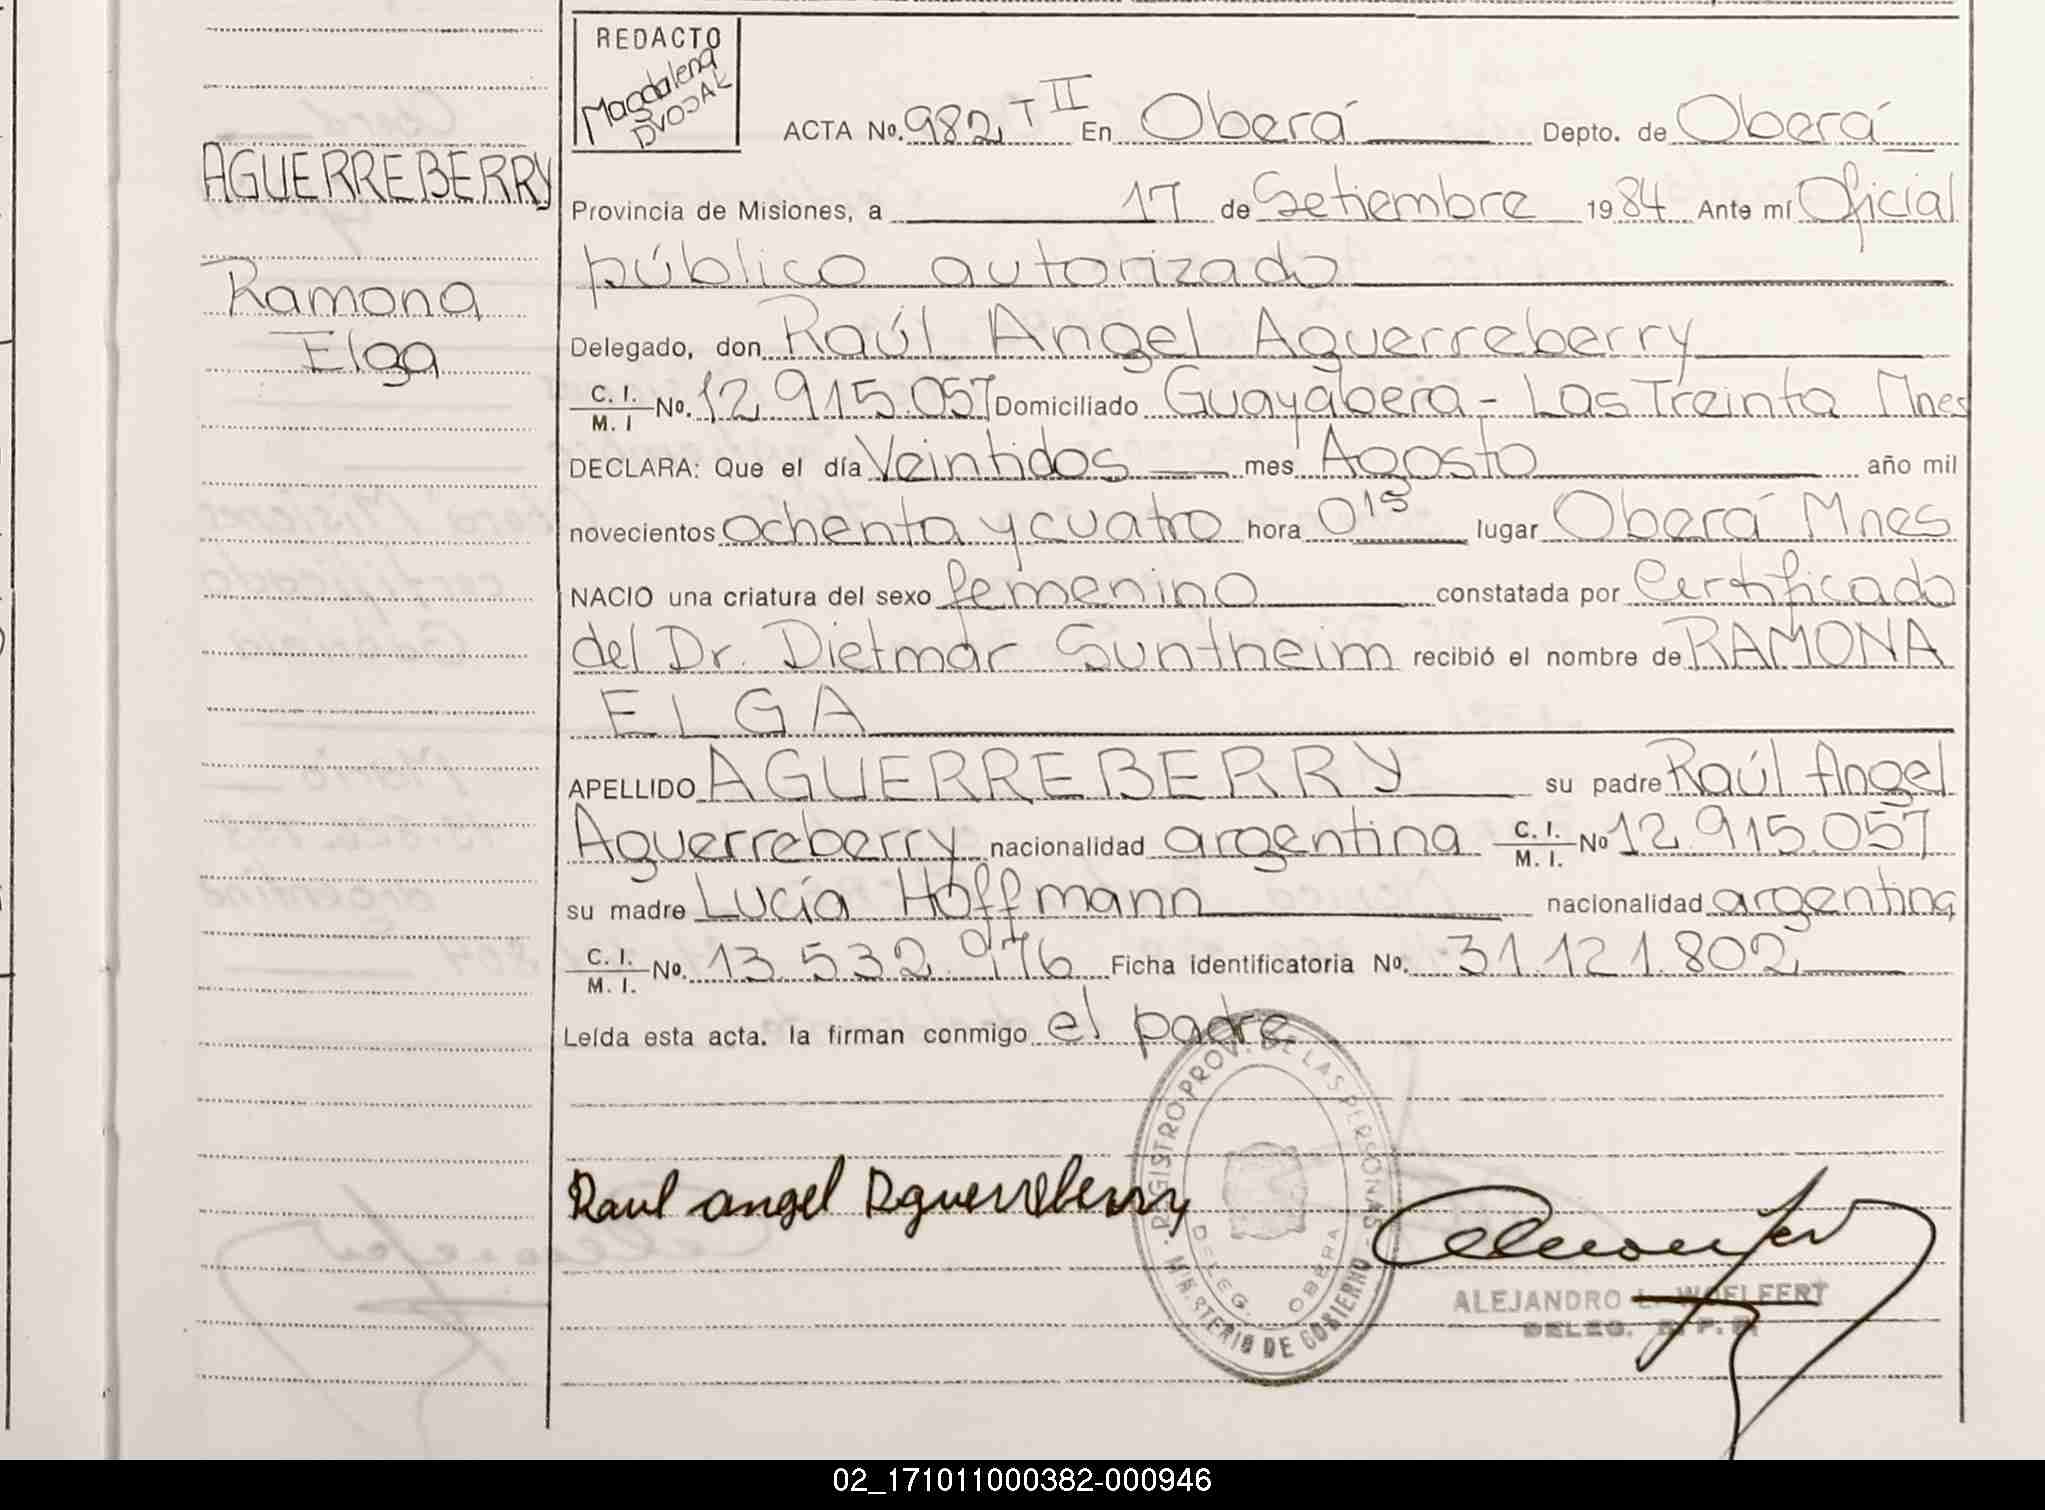 REDACTO
Magdalena
DVOJAK
AGUERREBERRY
Ramona
Elga
ACTA No. 982 T II En Oberá Depto. de Oberá
Provincia de Misiones, a 17 de Setiembre 1984 Ante mí Oficial
público autorizado
Delegado, don Raúl Angel Aguerreberry
C. I. / M. I No. 12.915.057 Domiciliado Guayabera - Las Treinta Mnes
DECLARA: Que el día Veintidos mes Agosto año mil
novecientos ochenta y cuatro hora 0 15 lugar Oberá Mnes
NACIO una criatura del sexo femenino constatada por Certificado
del Dr. Dietmar Suntheim recibió el nombre de RAMONA
ELGA
APELLIDO AGUERREBERRY su padre Raúl Angel
Aguerreberry nacionalidad argentina C. I. / M. I. No 12.915.057
su madre Lucía Hoffmann nacionalidad argentina
C. I. / M. I. No. 13.532.976 Ficha identificatoria No. 31.121.802
Leída esta acta. la firman conmigo el padre
REGISTRO PROV. DE LAS PERSONAS
DELEG. OBERA
MINISTERIO DE GOBIERNO
Raul angel Aguerreberry
ALEJANDRO L. WOELFERT
DELEG. R. P. P.
02_171011000382-000946